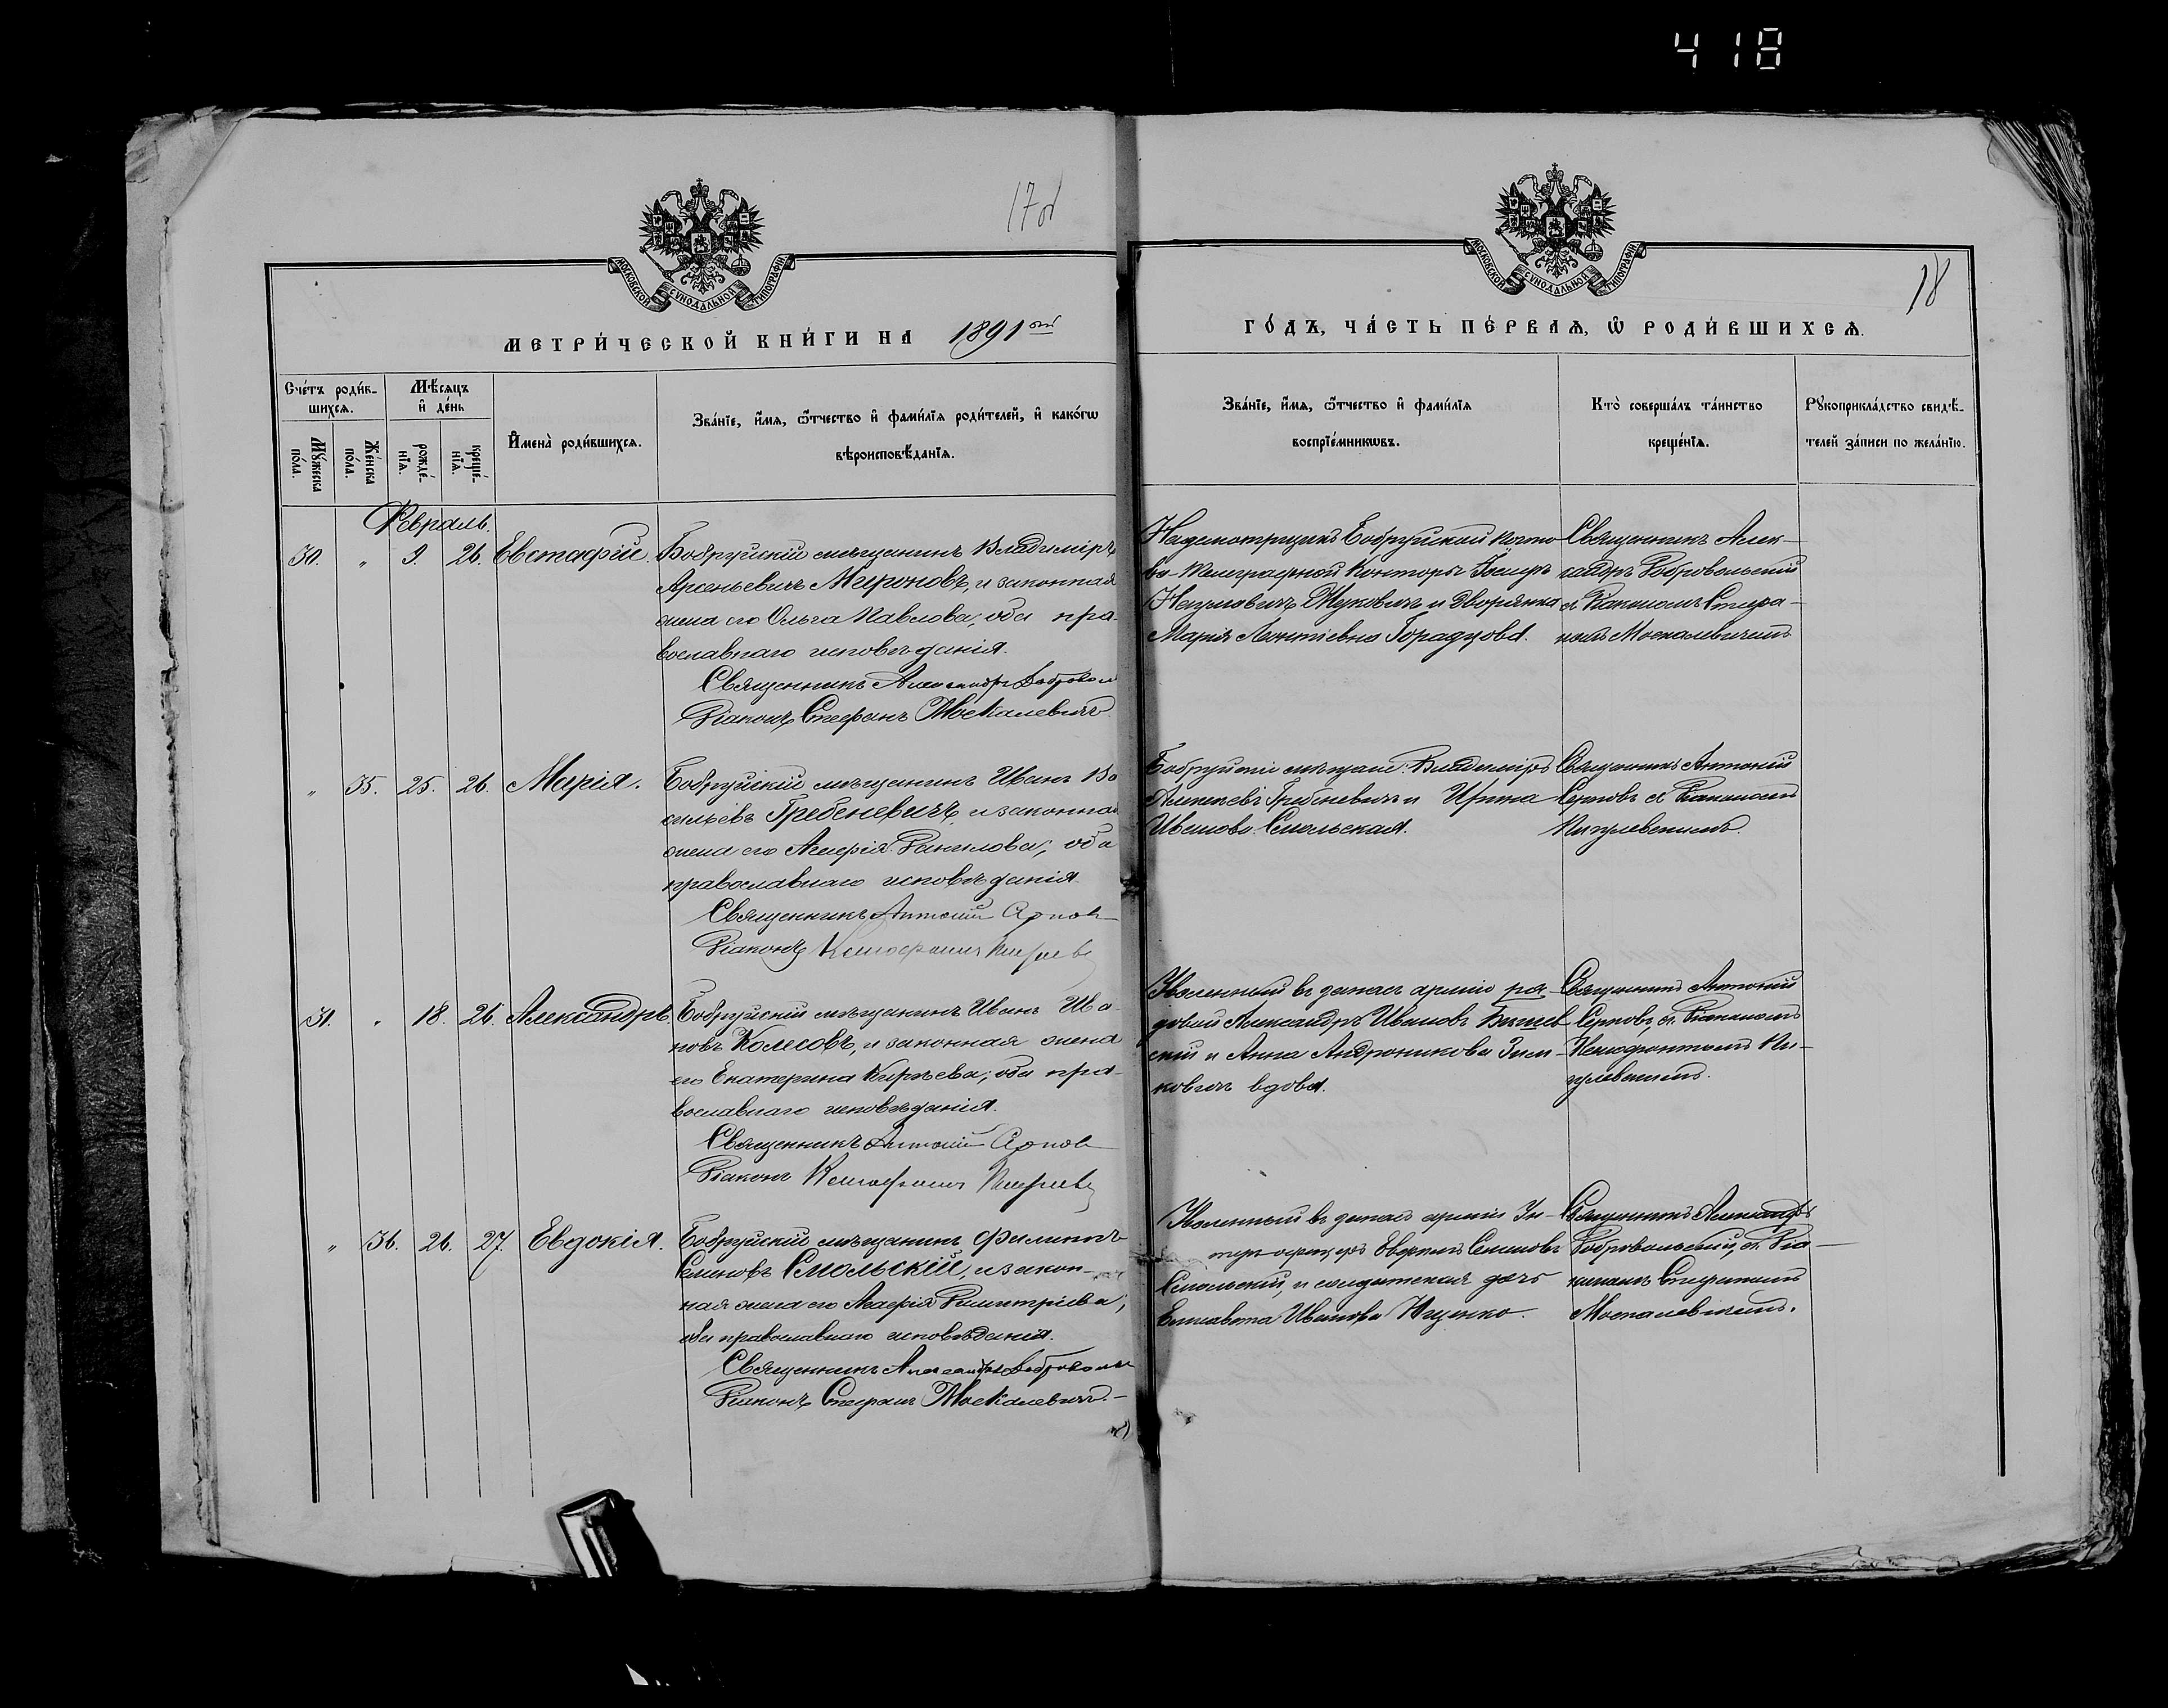 418
17об
18
МОСКОВСКОЙ СѴНОДАЛЬНОЙ ТИПОГРАФІИ
МОСКОВСКОЙ СѴНОДАЛЬНОЙ ТИПОГРАФІИ
МЕТРИ́ЧЕСКОЙ КНИ́ГИ НА 1891ый
ГО́ДЪ, ЧА́СТЬ ПЕ́РВАѦ, Ѽ РОДИ́ВШИХСѦ.
Сче́тъ роди́в-
шихсѧ.
Мꙋ́жеска
по́ла.
Же́нска
по́ла.
Мѣ́сѧцъ
и҆ де́нь
рожде́-
нїѧ.
креще́-
нїѧ.
И҆мена̀ роди́вшихсѧ.
Зва́нїе, и҆́мѧ, ѻ҆́тчество и҆ фами́лїѧ роди́телей, и҆ како́гѡ
вѣроисповѣ́данїѧ.
Зва́нїе, и҆́мѧ, ѻ҆́тчество и҆ фами́лїѧ
воспрїе́мникѡвъ.
Кто̀ соверша́лъ та́инство
креще́нїѧ.
Рꙋкоприкла́дство свидѣ́-
телей за́писи по жела́нїю.
Февраль.
30. " 9. 26. Евстафій. Бобруйскій мѣщанинъ Владиміръ
Арсеньевичъ Мироновъ, и законная
жена его Ольга Павлова; оба пра-
вославнаго исповѣданія.
Священникъ Александръ Доброво
Діаконъ Стефанъ Москалевичъ
Надсмотрщикъ Бобруйской почто
во-телеграфной Конторы Іосифъ
Наумовичъ Жуковичъ и дворянка
Марія Леонтіевна Горадцова.
Священникъ Алек-
сандръ Добровольскій
съ Діакономъ Стефа-
номъ Москалевичемъ
" 35. 25. 26. Марія. Бобруйскій мѣщанинъ Иванъ Ва
сильевъ Гребеневичъ, и законная
жена его Агафія Данилова; оба
православнаго исповѣданія.
Священникъ Антоній Серповъ
Діаконъ Ксенофонтъ
Бобруйскіе мѣщане: Владиміръ
Алексеевъ Гребеневичъ и Ирина
Иванова Смольская.
Священникъ Антоній
Серповъ съ Діакономъ
31. " 18. 26. Александръ. Бобруйскій мѣщанинъ Иванъ Ива-
новъ Колесовъ, и законная жена
его Екатерина Кирѣева; оба пра-
вославнаго исповѣданія.
Священникъ Антоній Серповъ
Діаконъ Ксенофонтъ
Уволенный въ запасъ арміи ря-
довой Александръ Ивановъ
скій и Анна Андроникова Зим-
ковичъ вдова.
Священникъ Антоній
Серповъ, съ Діакономъ
Ксенофонтомъ
" 36. 26. 27. Евдокія. Бобруйскій мѣщанинъ Филиппъ
Семиновъ Смольскій, и закон-
ная жена его Агафія Димитріева;
оба православнаго исповѣданія.
Священникъ Александръ Добровольс
Діаконъ Стефанъ Москалевичъ.
Уволенный въ запасъ арміи Ун-
теръ офицеръ Семиновъ
Смольскій, и солдатская дочь
Елисавета Иванова Ященко.
Священникъ Александръ
Добровольскій, съ Діа-
кономъ Стефаномъ
Москалевичемъ.